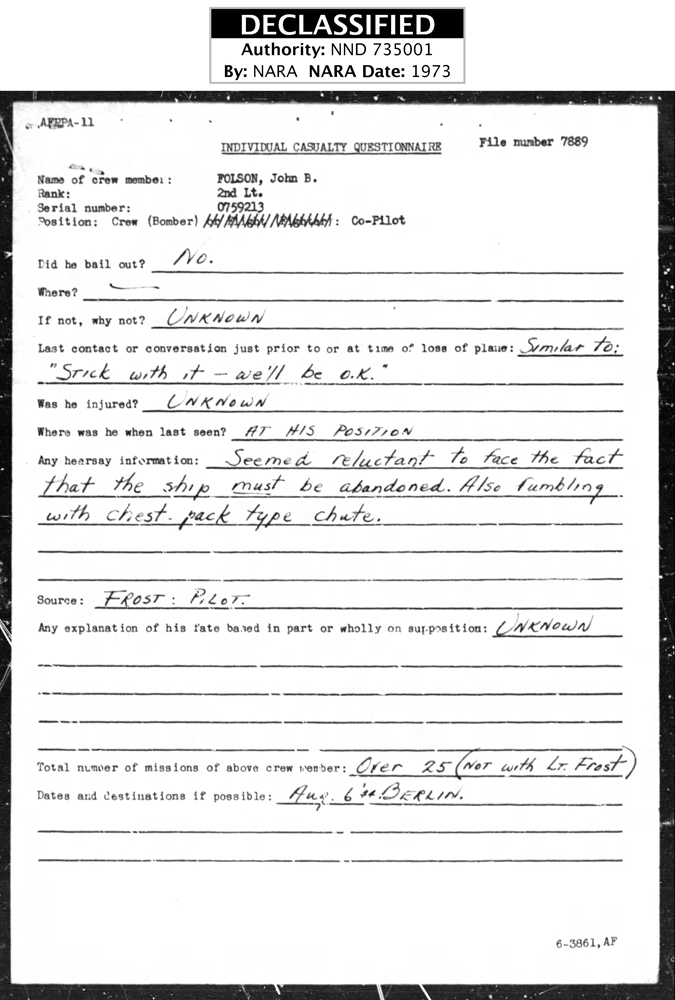 DECLASSIFIED
Authority: NND 735001
By: NARA NARA Date: 1973
AFPPA-11
INDIVIDUAL CASUALTY QUESTIONNAIRE File number 7889
Name of crew member: FOLSON, John B.
Rank: 2nd Lt.
Serial number: 0759213
Position: Crew (Bomber) : Co-Pilot
Did he bail out? No.
Where? —
If not, why not? UNKNOWN
Last contact or conversation just prior to or at time of loss of plane: Similar to:
"Stick with it - we'll be O.K."
Was he injured? UNKNOWN
Where was he when last seen? AT HIS POSITION
Any hearsay information: Seemed reluctant to face the fact
that the ship must be abandoned. Also fumbling
with chest-pack type chute.
Source: FROST: PILOT.
Any explanation of his fate based in part or wholly on supposition: UNKNOWN
Total number of missions of above crew member: Over 25 (Not with Lt. Frost)
Dates and destinations if possible: Aug. 6 BERLIN.
6-3861,AF